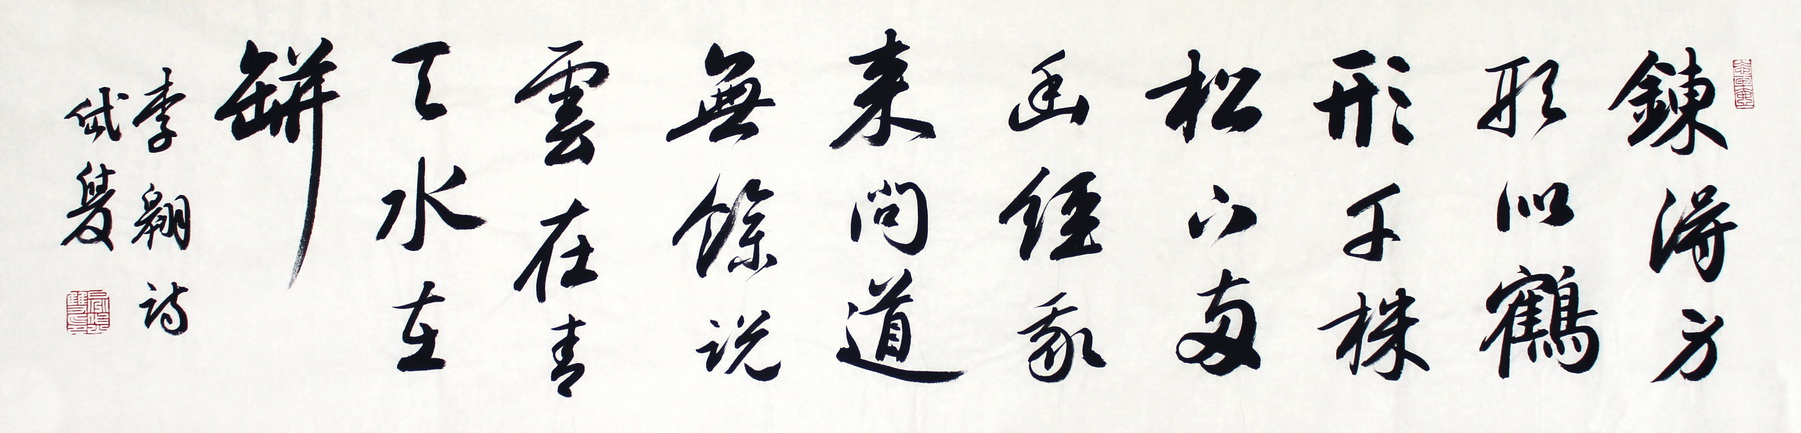 鍊得身
形似鶴
形千株
松下兩
函經我
來問道
無餘說
雲在青
天水在
缾
李翱詩